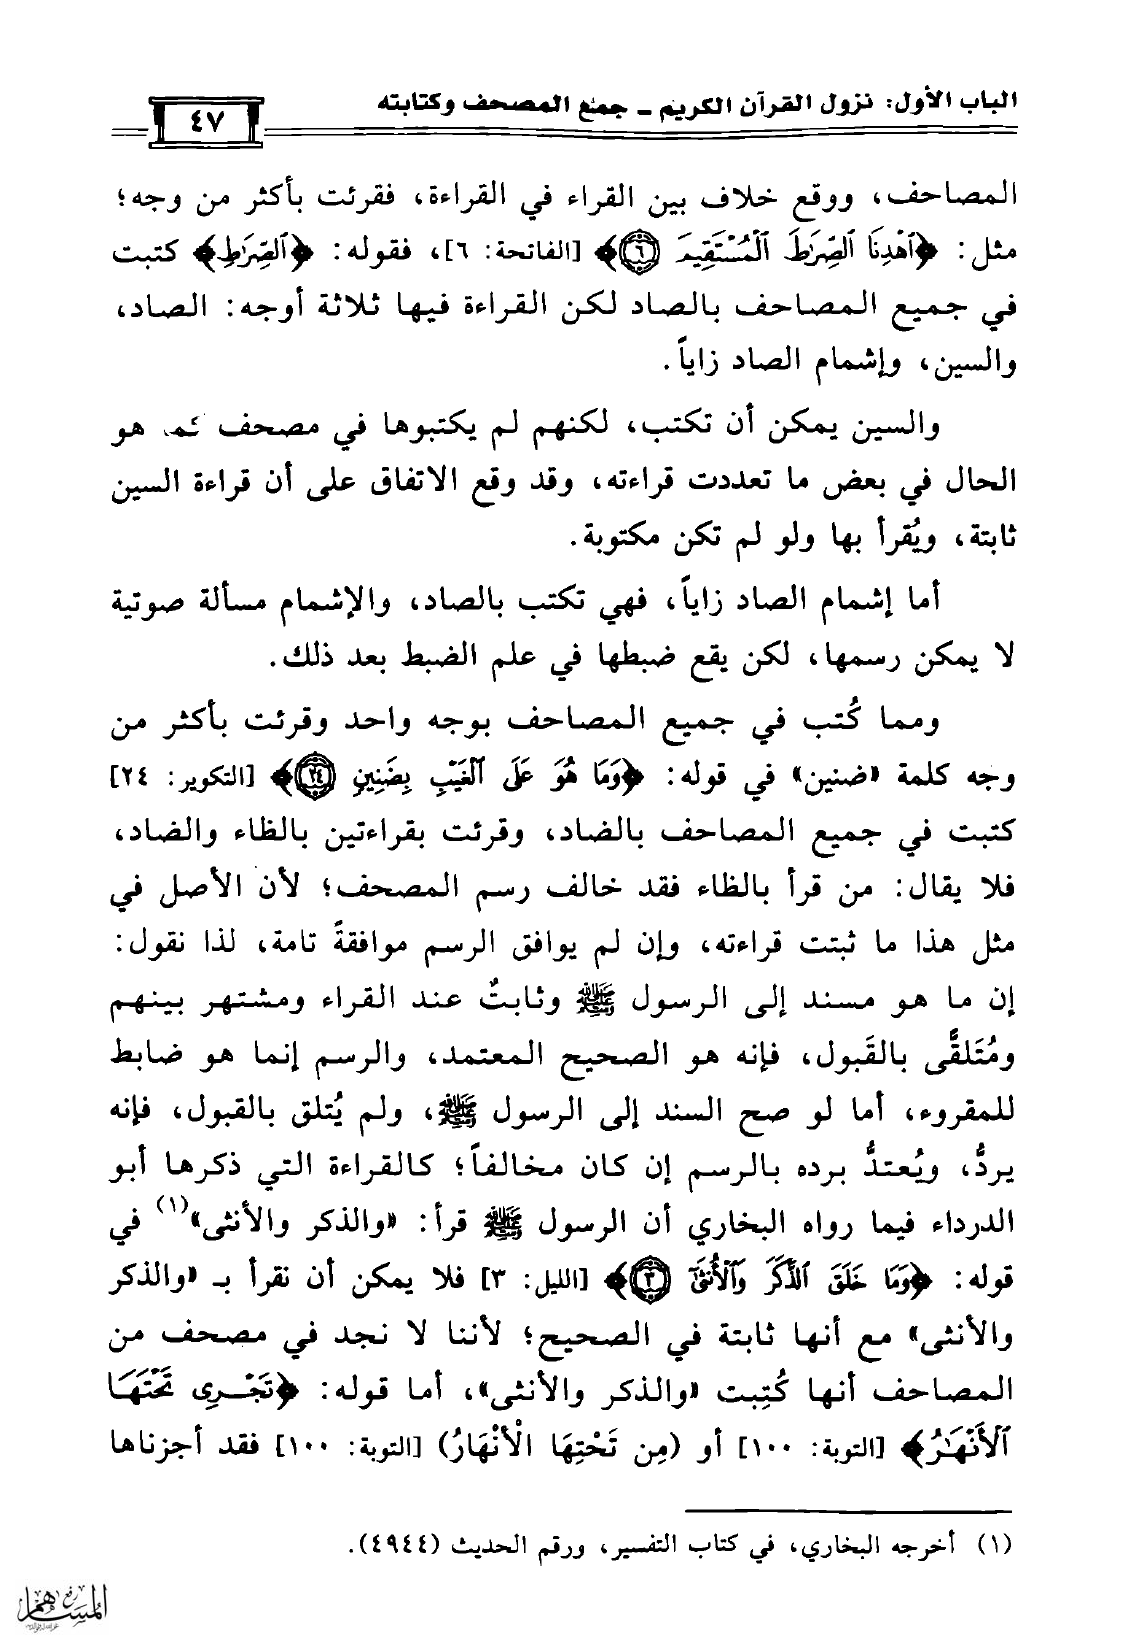 الباب الأول: نزول القرآن الكريم ـ جمع المصحف وكتابته
٤٧
المصاحف، ووقع خلاف بين القراء في القراءة، فقرئت بأكثر من وجه؛
مثل: ﴿ٱهْدِنَا ٱلصِّرَٰطَ ٱلْمُسْتَقِيمَ ۝٦﴾ [الفاتحة: ٦]، فقوله: ﴿ٱلصِّرَٰطِ﴾ كتبت
في جميع المصاحف بالصاد لكن القراءة فيها ثلاثة أوجه: الصاد،
والسين، وإشمام الصاد زاياً.
والسين يمكن أن تكتب، لكنهم لم يكتبوها في مصحف كما هو
الحال في بعض ما تعددت قراءته، وقد وقع الاتفاق على أن قراءة السين
ثابتة، ويُقرأ بها ولو لم تكن مكتوبة.
أما إشمام الصاد زاياً، فهي تكتب بالصاد، والإشمام مسألة صوتية
لا يمكن رسمها، لكن يقع ضبطها في علم الضبط بعد ذلك.
ومما كُتب في جميع المصاحف بوجه واحد وقرئت بأكثر من
وجه كلمة «ضنين» في قوله: ﴿وَمَا هُوَ عَلَى ٱلْغَيْبِ بِضَنِينٍ ۝٢٤﴾ [التكوير: ٢٤]
كتبت في جميع المصاحف بالضاد، وقرئت بقراءتين بالظاء والضاد،
فلا يقال: من قرأ بالظاء فقد خالف رسم المصحف؛ لأن الأصل في
مثل هذا ما ثبتت قراءته، وإن لم يوافق الرسم موافقةً تامة، لذا نقول:
إن ما هو مسند إلى الرسول ﷺ وثابتٌ عند القراء ومشتهر بينهم
ومُتَلقًّى بالقَبول، فإنه هو الصحيح المعتمد، والرسم إنما هو ضابط
للمقروء، أما لو صح السند إلى الرسول ﷺ، ولم يُتلق بالقبول، فإنه
يردُّ، ويُعتدُّ برده بالرسم إن كان مخالفاً؛ كالقراءة التي ذكرها أبو
الدرداء فيما رواه البخاري أن الرسول ﷺ قرأ: «والذكر والأنثى»(١) في
قوله: ﴿وَمَا خَلَقَ ٱلذَّكَرَ وَٱلْأُنثَىٰٓ ۝٣﴾ [الليل: ٣] فلا يمكن أن نقرأ بـ «والذكر
والأنثى» مع أنها ثابتة في الصحيح؛ لأننا لا نجد في مصحف من
المصاحف أنها كُتِبت «والذكر والأنثى»، أما قوله: ﴿تَجْرِى تَحْتَهَا
ٱلْأَنْهَٰرُ﴾ [التوبة: ١٠٠] أو (مِن تَحْتِهَا الْأنْهَارُ) [التوبة: ١٠٠] فقد أجزناها
(١) أخرجه البخاري، في كتاب التفسير، ورقم الحديث (٤٩٤٤).